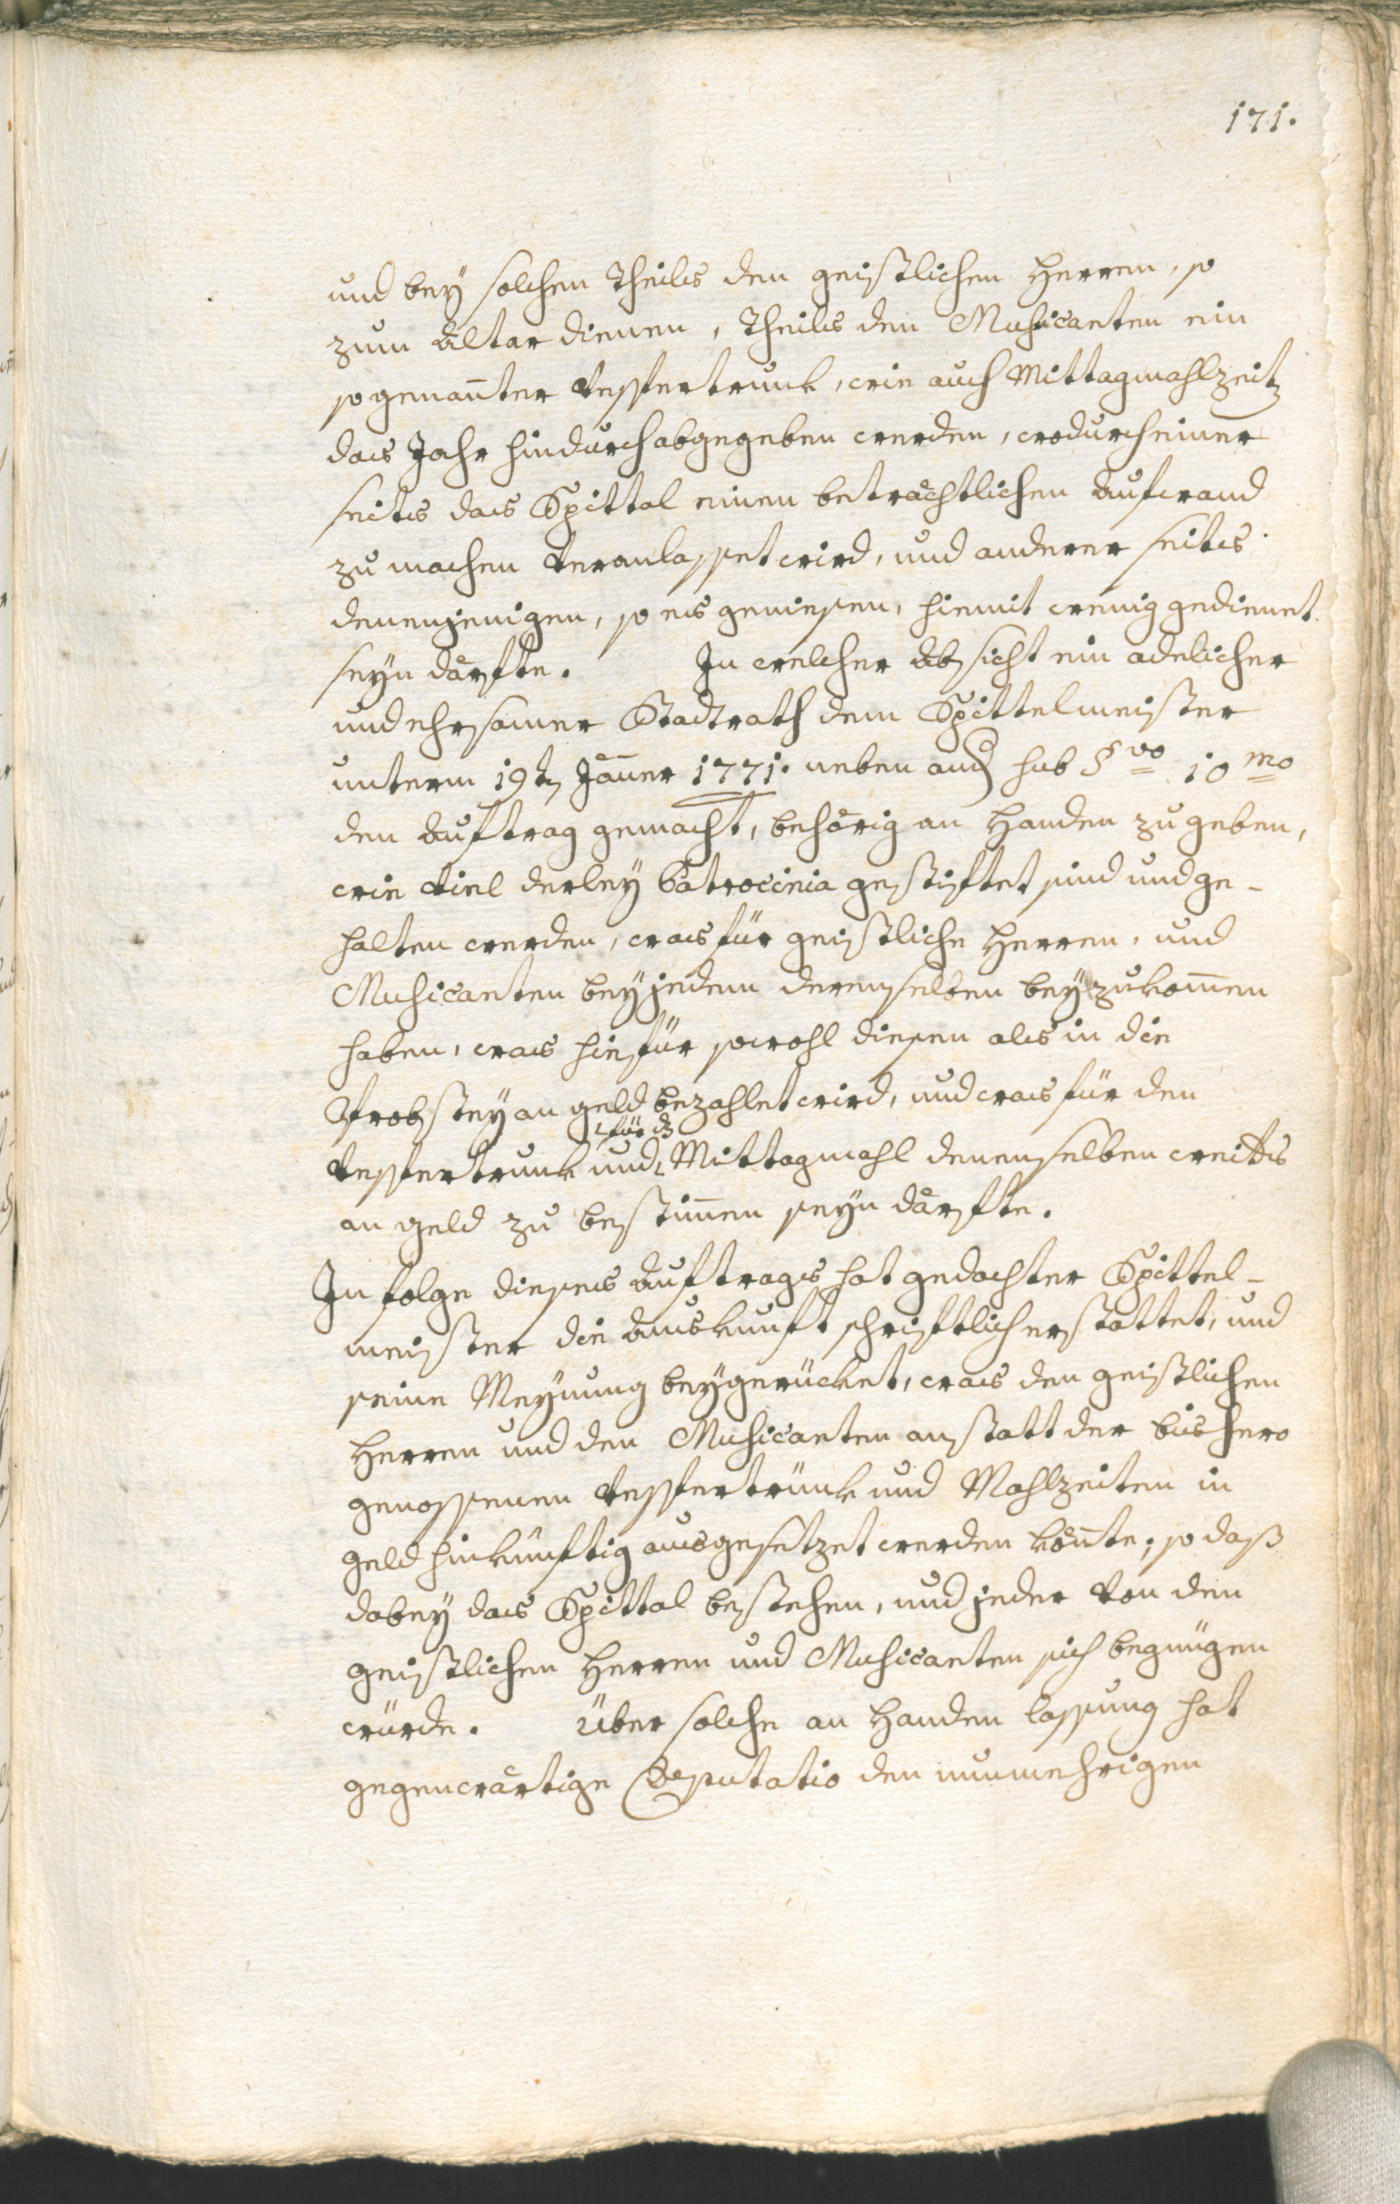 171.
und bey solchen Theils den geistlichen Herren, so
zum Altar dienen, Theils den Musicanten ein
so genañter Vespertrunk, wie auch Mittagmahlzeit
das Jahr hindurch abgegeben werden, wodurch einer
seits das Spittal einen beträchtlichen Aufwand
zu machen veranlasset wird, und anderer seits
denenjenigen, so es geniesen, hiemit wenig gedienet
seyn dårfte. In welcher Absicht ein adelicher
und ehrsamer Stadtrath dem Spittelmeister
unterm 19t. Jäñer 1771. neben and. sub §vo 10mo
den Auftrag gemacht, behörig an Handen zu geben,
wie viel derley Patrocinia gestiftet sind und ge-
halten werden, was für geistliche Herren, und
Musicanten bey jedem derenselben beyzukom̄en
haben, was hiefür sowohl diesen als in die
Probstey an geld bezahlet wird, und was für den
Vespertrunk und für dz Mittagmahl denenselben weiters
an geld zu bestim̄en seyn dårfte.
In folge dieses Auftrags hat gedachter Spittel-
meister die Auskunft schriftlich erstattet, und
seine Meynung beygerücket, was den geistlichen
Herren und den Musicanten anstatt der bishero
genossenen Vespertrünk und Mahlzeiten in
geld hinkünftig ausgesetzet werden köñte, so daß
dabey das Spittal bestehen, und jeder von den
geistlichen Herren und Musicanten sich begnügen
würde. Über solche an Handen lassung hat
gegenwärtige Deputatio den nunmehrigen